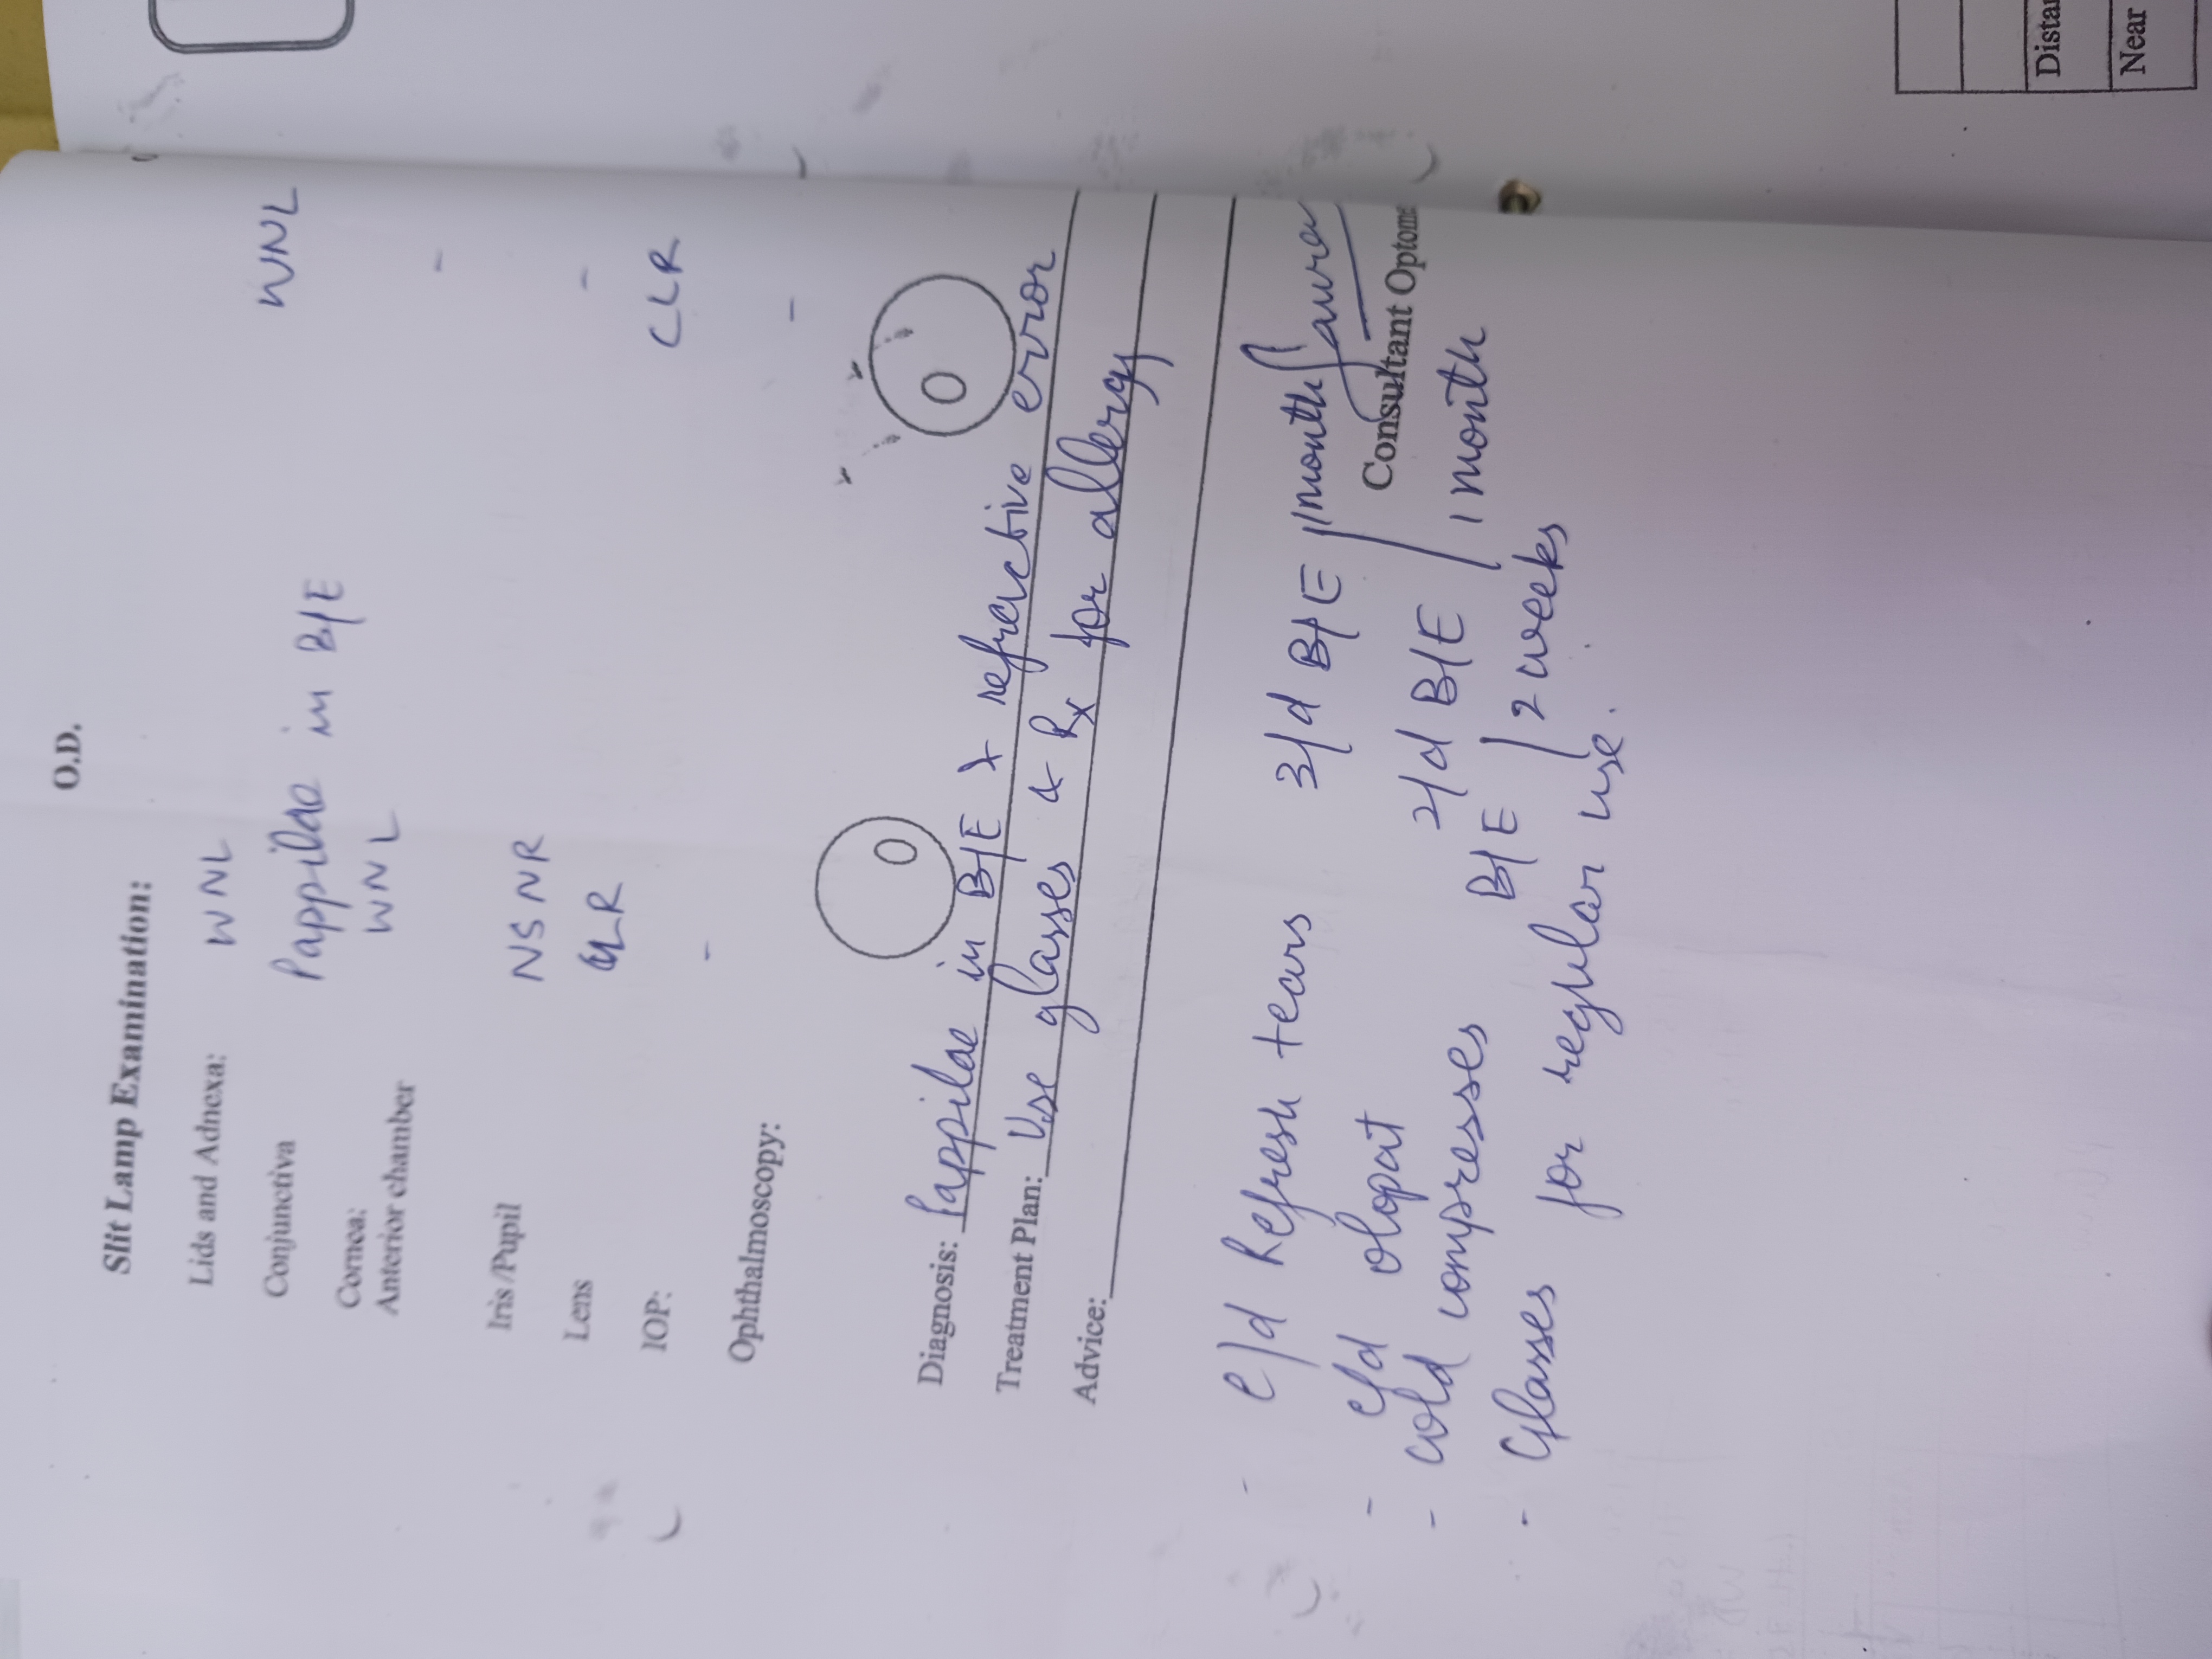 O.D.
Slit Lamp Examination:
Lids and Adnexa: WNL WNL
Conjunctiva Pappilae in B/E
Cornea: WNL
Anterior chamber -
Iris /Pupil NSNR -
Lens CLR CLR
IOP: - -
Ophthalmoscopy:
Diagnosis: Pappilae in B/E & refractive error
Treatment Plan: Use glasses & Rx for allergy
Advice:
- e/d Refresh tears 3/d B/E / 1 month
Consultant Optome
- e/d olopat 2/d B/E / 1 month
- cold compresses B/E / 2 weeks
- Glasses for regular use.
Distan
Near